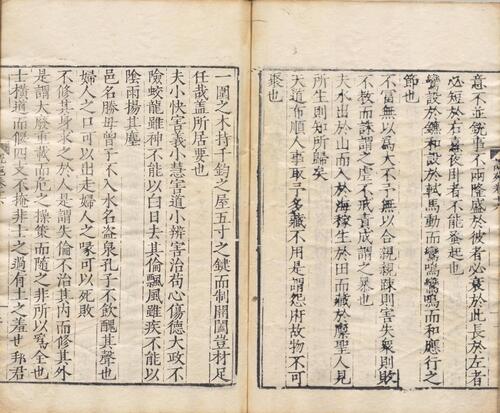 意不並銳事不兩隆盛於彼者必衰於此長於左者
必短於右喜夜卧者不能蚤起也
鸞設於鑣和設於軾馬動而鸞鳴鸞鳴而和應行之
節也
不富無以為大不予無以合親親踈則害失衆則敗
不教而誅謂之虐不戒責成謂之暴也
夫水出於山而入於海稼生於田而藏於廩聖人見
所生則知所歸矣
天道布順人事取予多藏不用是謂怨府故物不可
聚也
一圍之木持千鈞之屋五寸之鍵而制開闔豈材足
任哉蓋所居要也
夫小快害義小慧害道小辨害治苟心傷德大政不
險蛟龍雖神不能以白日夫其倫飄風雖疾不能以
陰雨揚其塵
邑名勝母曾子不入水名盗泉孔子不飲醜其聲也
婦人之口可以出走婦人之喙可以死敗
不修其身求之於人是謂失倫不治其內而修其外
是謂大廢重載而危之操策而隨之非所以爲全也
士橫道而偃四支不掩非士之過有土之羞也邦君